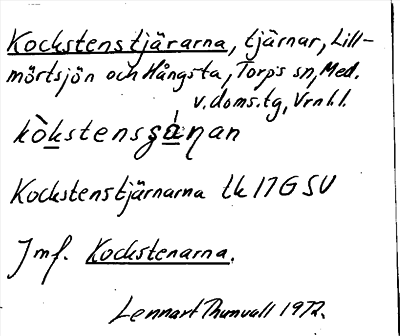 Kockstenstjärarna, tjärnar, Lill-
mörtsjön och Hångsta, Torps sn, Med.
v. doms.tg, Vrnl.l.
kòkstensʒánan
Kockstenstjärnarna tk 17G SV
Jmf. Kockstenarna.
Lennart Thunvall 1972.